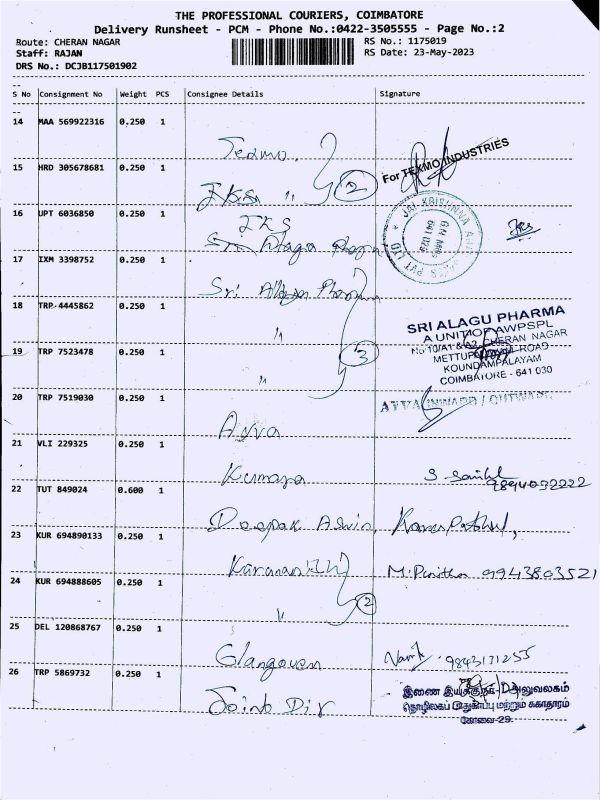 THE PROFESSIONAL COURIERS, COIMBATORE
Delivery Runsheet - PCM - Phone No.:0422-3505555 - Page No.:2
Route: CHERAN NAGAR
RS No.: 1175019
Staff: RAJAN
RS Date: 23-May-2023
DRS No.: DCJB117501902
S No Consignment No Weight PCS Consignee Details Signature
14 MAA 569922316 0.250 1
Texmo.
For TEXMO INDUSTRIES
15 HRD 305678681 0.250 1
〃 2
JAI KRISHNNA
PVT LTD
641 029
16 UPT 6036850 0.250 1
JKS
17 IXM 3398752 0.250 1
Sri Alagu Pharma
18 TRP 4445862 0.250 1
〃
SRI ALAGU PHARMA
A UNIT OF AWPSPL
No 10/A1 & A2, CHERAN NAGAR
METTUPALAYAM ROAD
KOUNDAMPALAYAM
COIMBATORE - 641 030
19 TRP 7523478 0.250 1
〃 3
20 TRP 7519030 0.250 1
Avva
AVVA INWARD / OUTWARD
21 VLI 229325 0.250 1
Kumara
9894092222
22 TUT 849024 0.600 1
Deepak Aswin,
23 KUR 694890133 0.250 1
M. 9943803521
24 KUR 694888605 0.250 1
〃 2
25 DEL 120868767 0.250 1
9843131255
26 TRP 5869732 0.250 1
Joint Dir
இணை இயக்குநர்-I அலுவலகம்
தொழிலகப் பாதுகாப்பு மற்றும் சுகாதாரம்
கோவை-29.